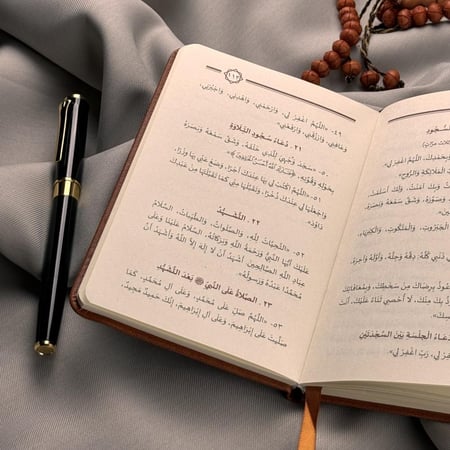 السُّجُودِ
وَبِحَمْدِكَ، اللَّهُمَّ اغْفِرْ لِي»
الْمَلَائِكَةِ وَالرُّوحِ»
وَبِكَ آمَنْتُ، وَلَكَ أَسْلَمْتُ،
وَصَوَّرَهُ، وَشَقَّ سَمْعَهُ وَبَصَرَهُ،
الْجَبَرُوتِ، وَالْمَلَكُوتِ، وَالْكِبْرِيَاءِ،
ذَنْبِي كُلَّهُ: دِقَّهُ وَجِلَّهُ، وَأَوَّلَهُ وَآخِرَهُ
أَعُوذُ بِرِضَاكَ مِنْ سَخَطِكَ، وَبِمُعَافَاتِكَ
بِكَ مِنْكَ، لَا أُحْصِي ثَنَاءً عَلَيْكَ، أَنْتَ
دُعَاءُ الْجِلْسَةِ بَيْنَ السَّجْدَتَيْنِ
لِي، رَبِّ اغْفِرْ لِي»
١١٣
٤٩. «اللَّهُمَّ اغْفِرْ لِي، وَارْحَمْنِي، وَاهْدِنِي، وَاجْبُرْنِي،
وَعَافِنِي، وَارْزُقْنِي، وَارْفَعْنِي».
٢١. دُعَاءُ سُجُودِ التِّلَاوَةِ
٥٠. «سَجَدَ وَجْهِيَ لِلَّذِي خَلَقَهُ، وَشَقَّ سَمْعَهُ وَبَصَرَهُ
بِحَوْلِهِ وَقُوَّتِهِ، ﴿فَتَبَارَكَ اللَّهُ أَحْسَنُ الْخَالِقِينَ﴾».
٥١. «اللَّهُمَّ اكْتُبْ لِي بِهَا عِنْدَكَ أَجْرًا، وَضَعْ عَنِّي بِهَا وِزْرًا،
وَاجْعَلْهَا لِي عِنْدَكَ ذُخْرًا، وَتَقَبَّلْهَا مِنِّي كَمَا تَقَبَّلْتَهَا مِنْ عَبْدِكَ
دَاوُدَ».
٢٢. التَّشَهُّدُ
٥٢. «التَّحِيَّاتُ لِلَّهِ، وَالصَّلَوَاتُ، وَالطَّيِّبَاتُ، السَّلَامُ
عَلَيْكَ أَيُّهَا النَّبِيُّ وَرَحْمَةُ اللَّهِ وَبَرَكَاتُهُ، السَّلَامُ عَلَيْنَا وَعَلَى
عِبَادِ اللَّهِ الصَّالِحِينَ. أَشْهَدُ أَنْ لَا إِلَهَ إِلَّا اللَّهُ وَأَشْهَدُ أَنَّ
مُحَمَّدًا عَبْدُهُ وَرَسُولُهُ».
٢٣. الصَّلَاةُ عَلَى النَّبِيِّ ﷺ بَعْدَ التَّشَهُّدِ
٥٣. «اللَّهُمَّ صَلِّ عَلَى مُحَمَّدٍ، وَعَلَى آلِ مُحَمَّدٍ، كَمَا
صَلَّيْتَ عَلَى إِبْرَاهِيمَ، وَعَلَى آلِ إِبْرَاهِيمَ، إِنَّكَ حَمِيدٌ مَجِيدٌ،